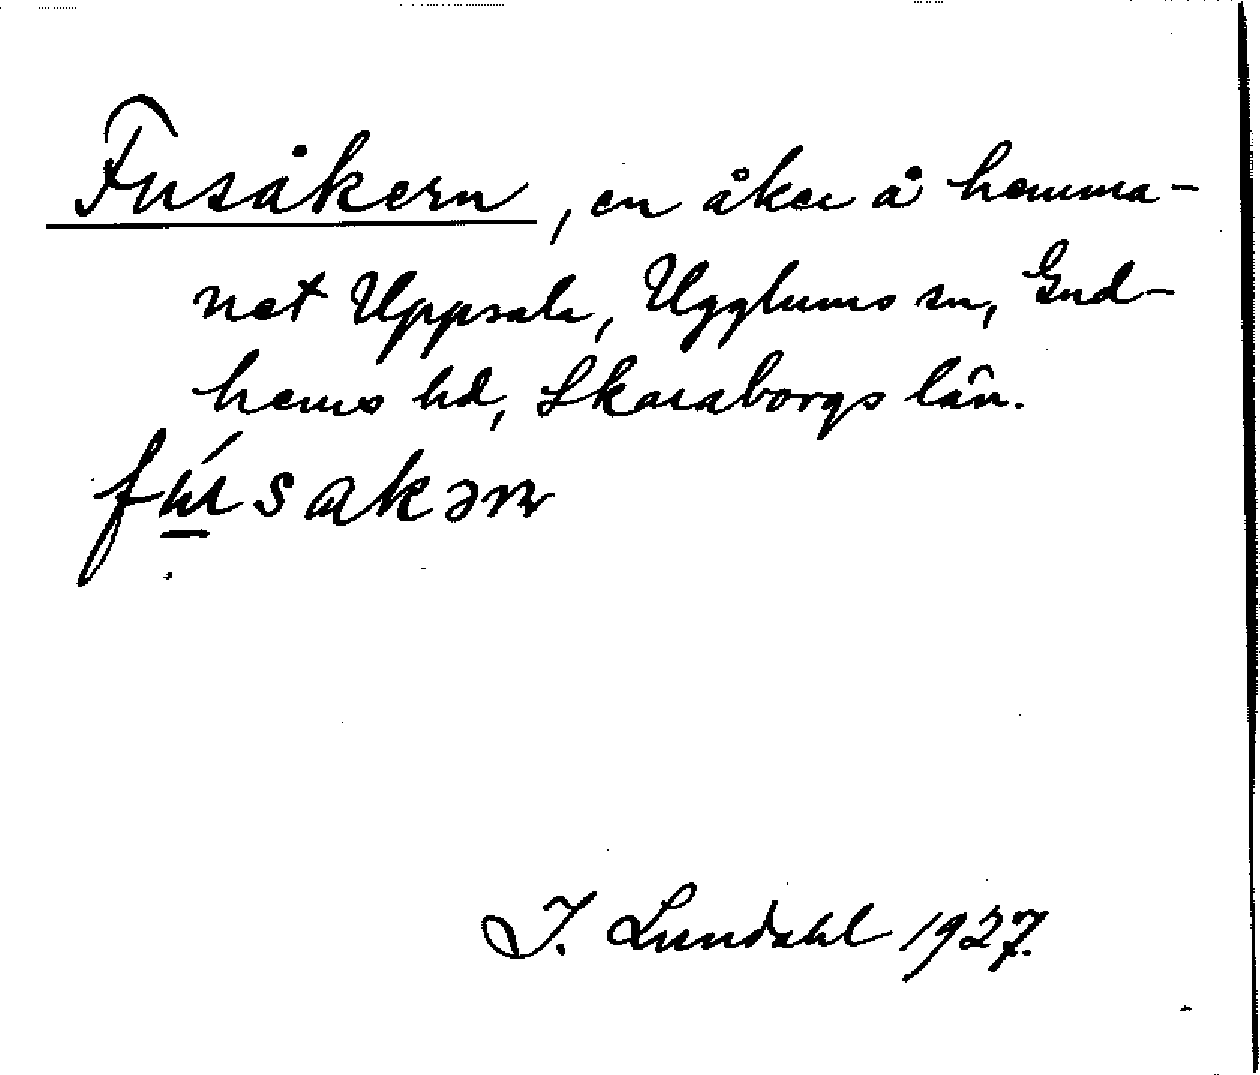 Fusåkern, en åker å hemma-
net Uppsala, Ugglums sn, Gud-
hems hd, Skaraborgs län.
fú̲sakər
I. Lundahl 1927.